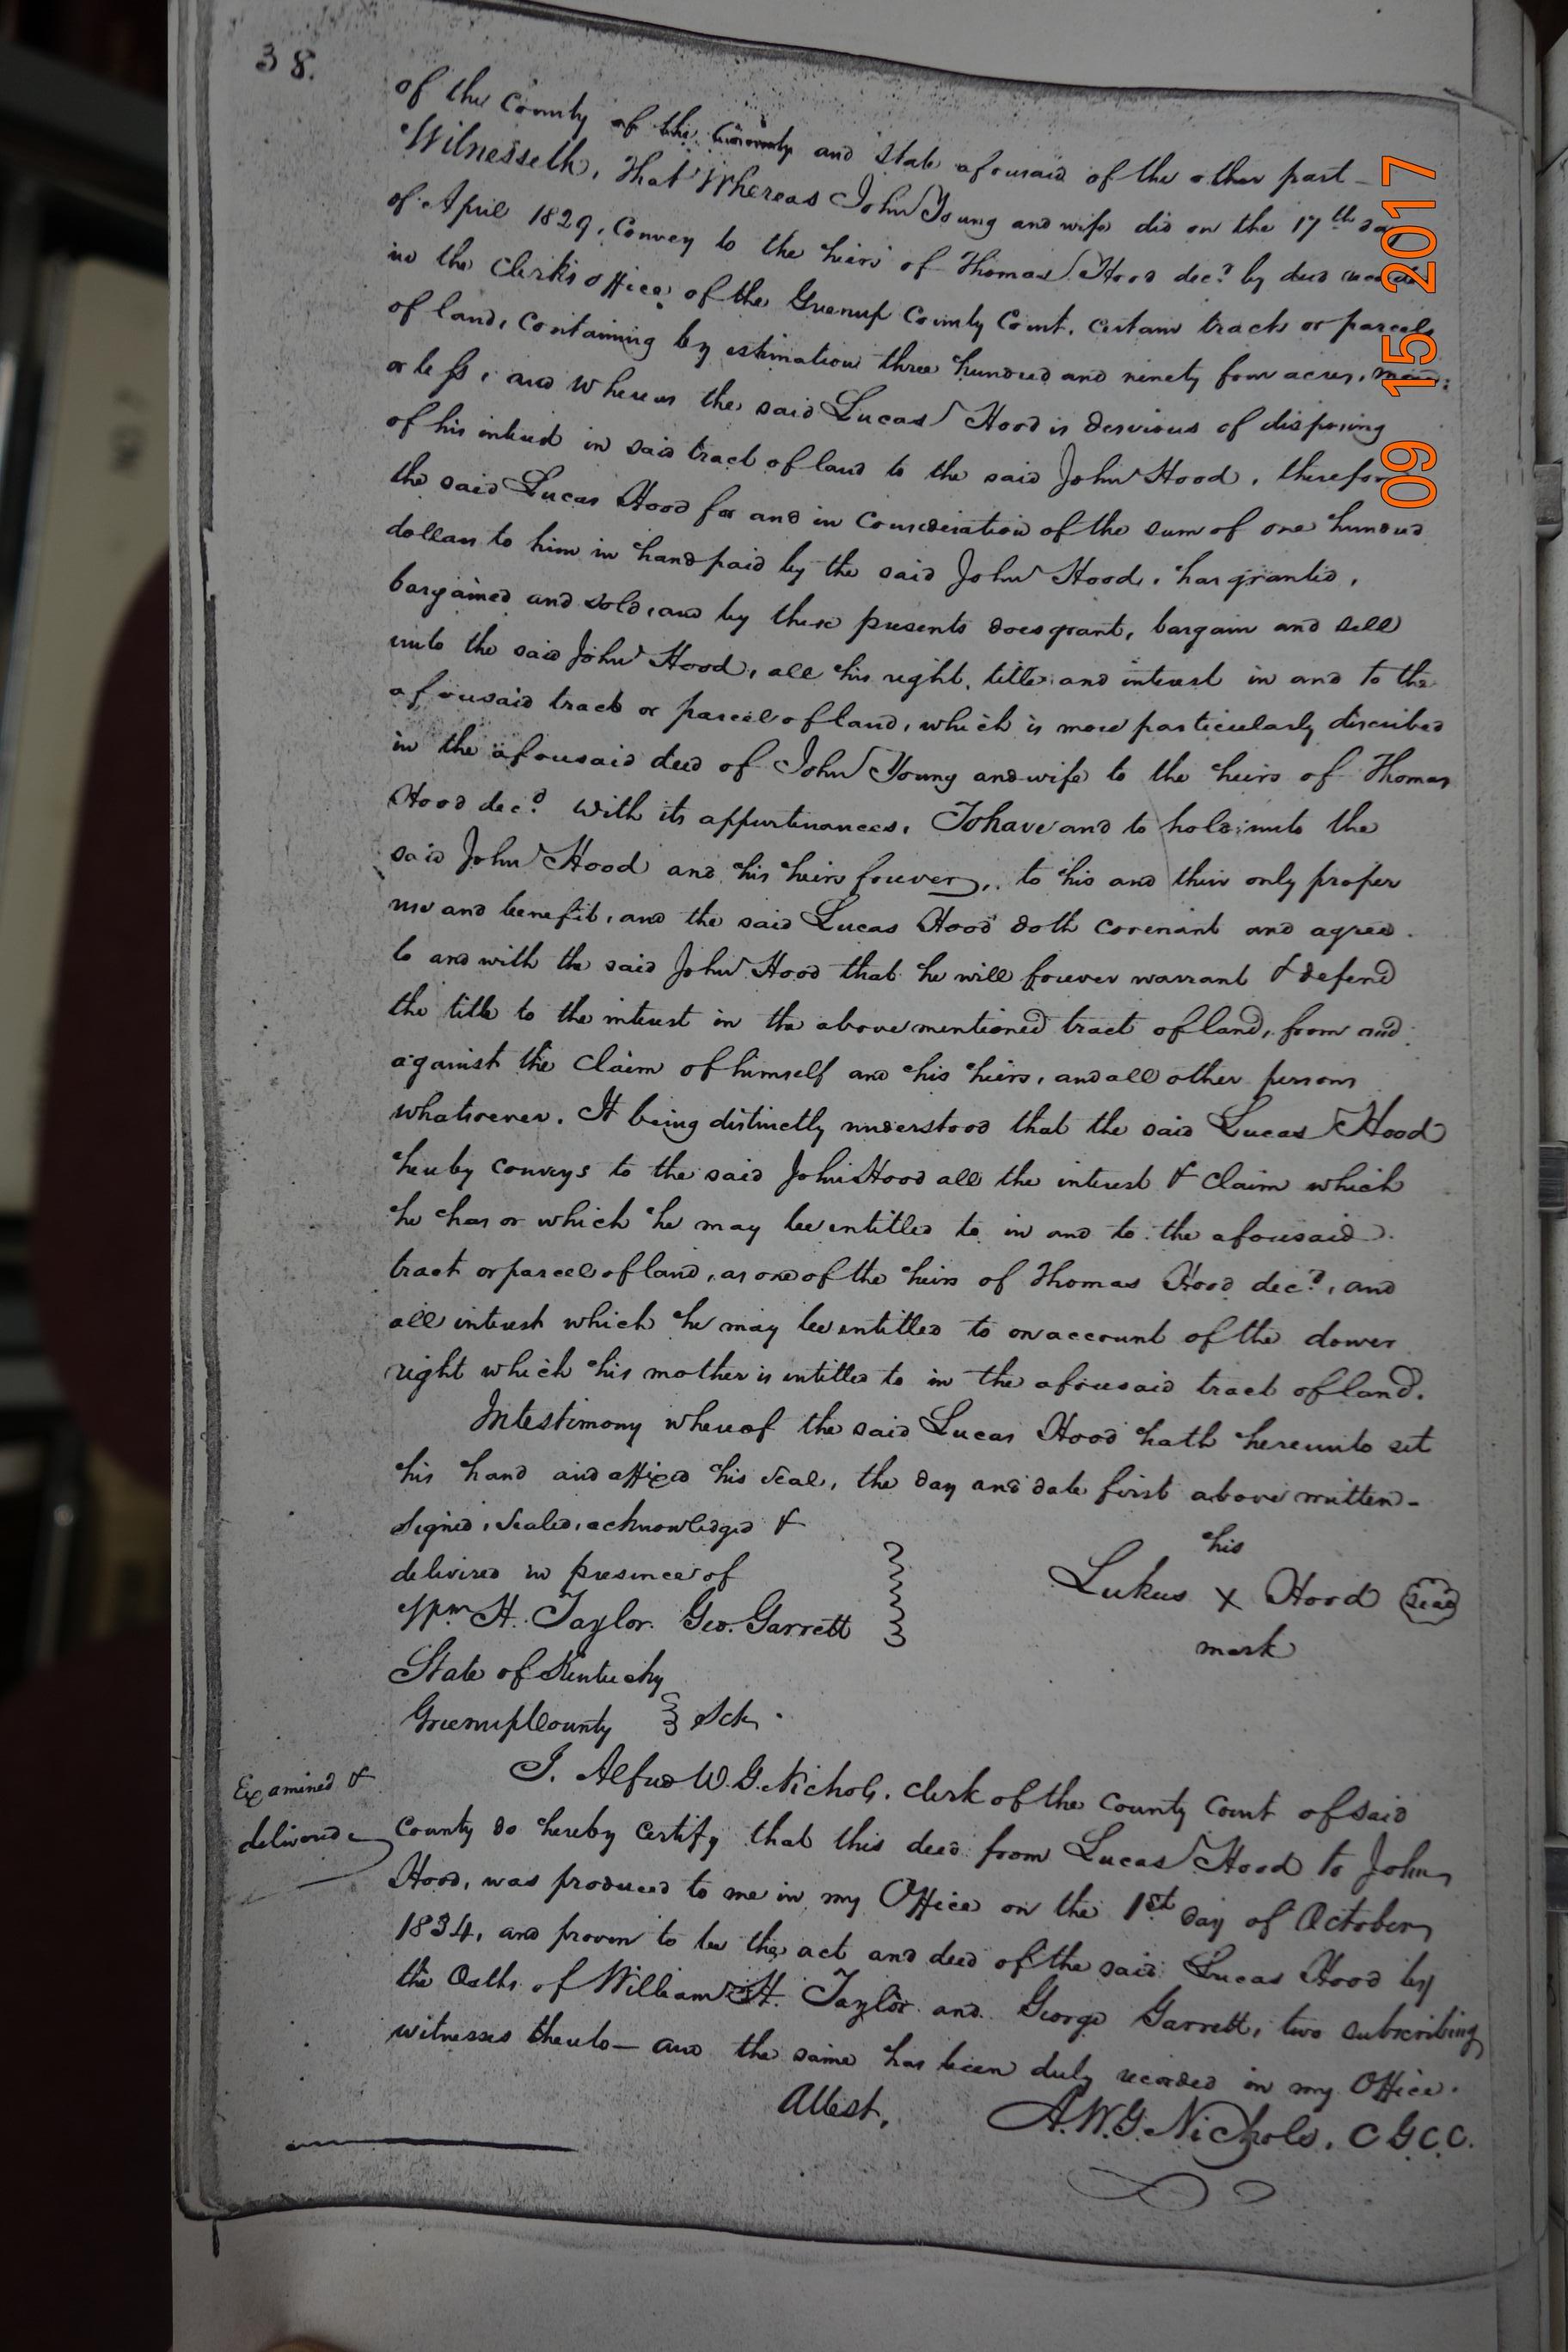 38.
of the County of the County and State aforesaid of the other part
Witnesseth, That Whereas John Young and wife did on the 17th day
of April 1829, Convey to the heirs of Thomas Hood decd by deed
in the Clerk's office, of the Greenup County Court, certain tracts or parcels
of land, containing by estimation three hundred and ninety four acres, more
or less, and whereas the said Lucas Hood is desirous of disposing
of his interest in said tract of land to the said John Hood, therefore
the said Lucas Hood for and in Consideration of the sum of one hundred
dollars to him in hand paid by the said John Hood, has granted,
bargained and sold, and by these presents does grant, bargain and sell
unto the said John Hood, all his right, title, and interest in and to the
aforesaid tract or parcel of land, which is more particularly discribed
in the aforesaid deed of John Young and wife to the heirs of Thomas
Hood decd with its appurtenances, To have and to hold unto the
said John Hood and his heirs forever, to his and their only proper
use and benefit, and the said Lucas Hood doth covenant and agree
to and with the said John Hood that he will forever warrant & defend
the title to the interest in the above mentioned tract of land, from and
against the Claim of himself and his heirs, and all other persons
whatsoever. It being distinctly understood that the said Lucas Hood
hereby conveys to the said John Hood all the interest & Claim which
he has or which he may be entitled to in and to the aforesaid
tract or parcel of land, as one of the heirs of Thomas Hood decd, and
all interest which he may be entitled to on account of the dower
right which his mother is intitled to in the aforesaid tract of land.
In testimony whereof the said Lucas Hood hath hereunto set
his hand and affixed his seal, the day and date first above written-
Signed, Sealed, acknowledged &
delivered in presence of
Wm H. Taylor. Geo. Garrett
his
Lukus X Hood Seal
mark
State of Kentucky
Greenup County } Sct.
I. Alfred W. G. Nichols, Clerk of the County Court of said
Examined &
delivered
County do hereby Certify that this deed from Lucas Hood to John
Hood, was produced to me in my Office on the 1st day of October
1834, and proven to be the act and deed of the said Lucas Hood by
the Oaths of William H. Taylor and George Garrett, two subscribing
witnesses thereto — and the same has been duly recorded in my Office.
Attest, A. W. G. Nichols, C G C C.
09 15 2017